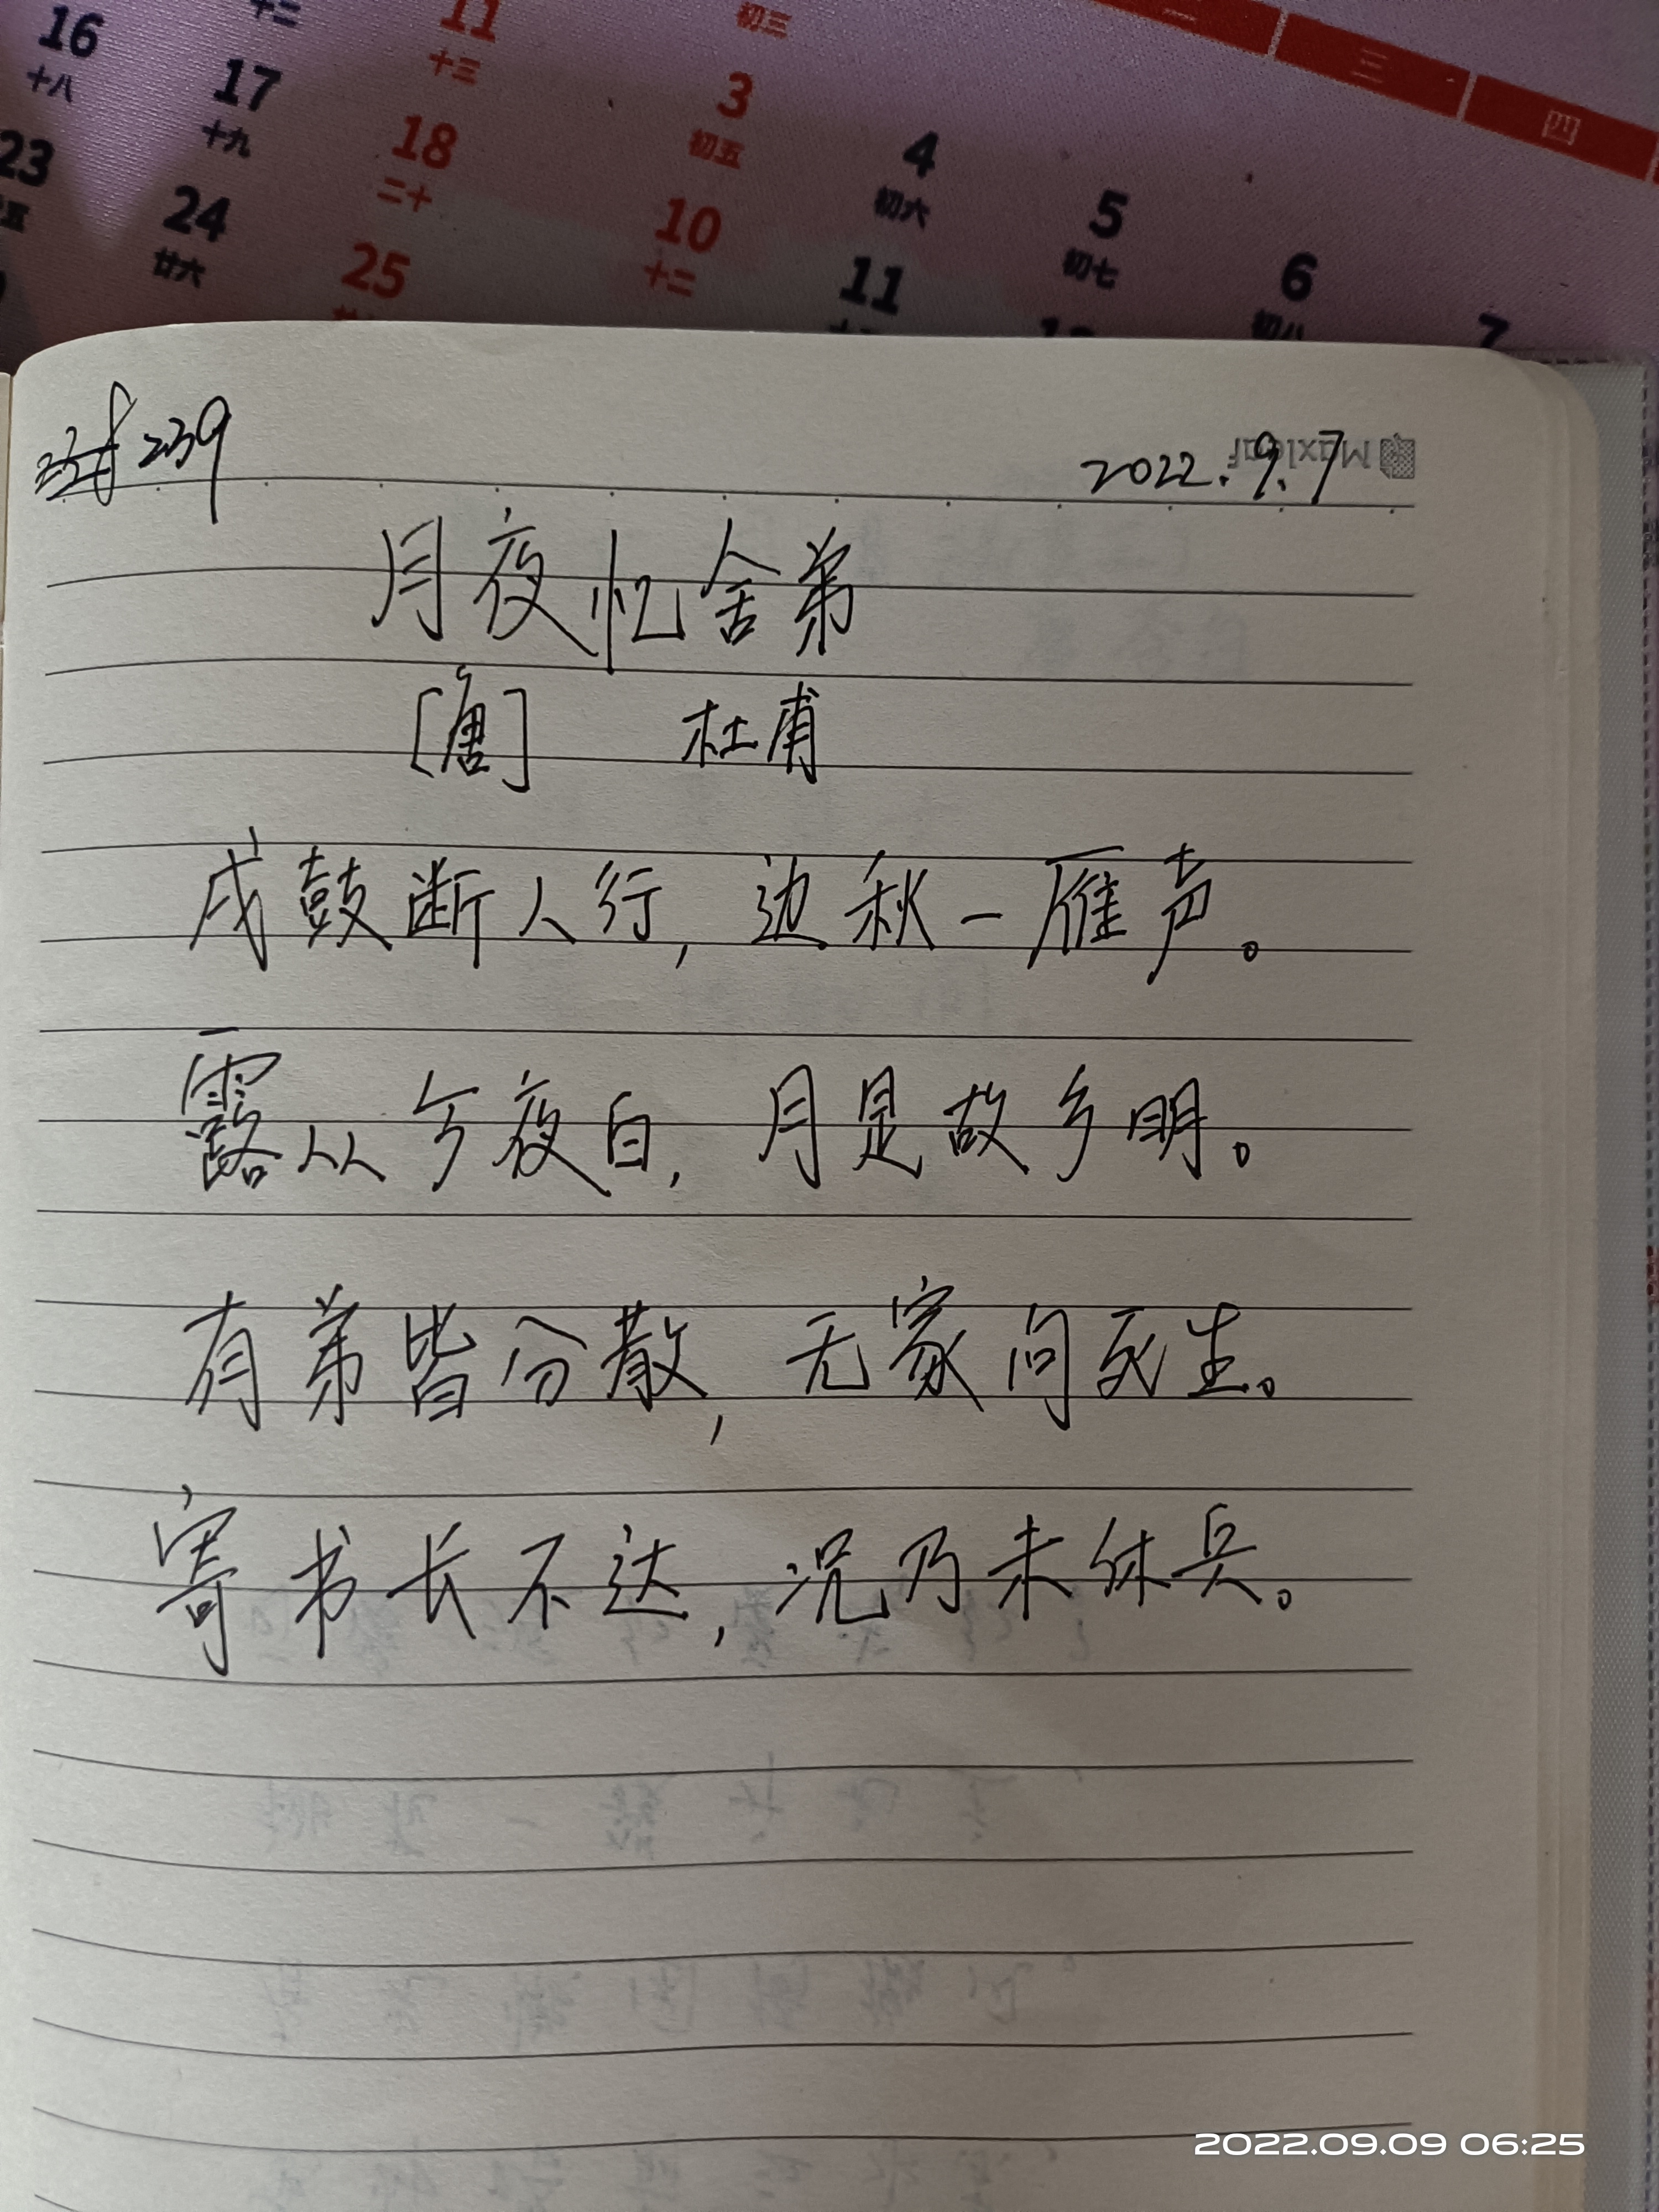 二 三 四
16 十八 17 十九 11 十三 18 二十 初三 3 初五 4 初六 5 初七 6 初八 7
23 24 廿六 25 10 十二 11
239 2022.9.7 Maxleaf
月夜忆舍弟
[唐] 杜甫
戍鼓断人行，边秋一雁声。
露从今夜白，月是故乡明。
有弟皆分散，无家问死生。
寄书长不达，况乃未休兵。
2022.09.09 06:25